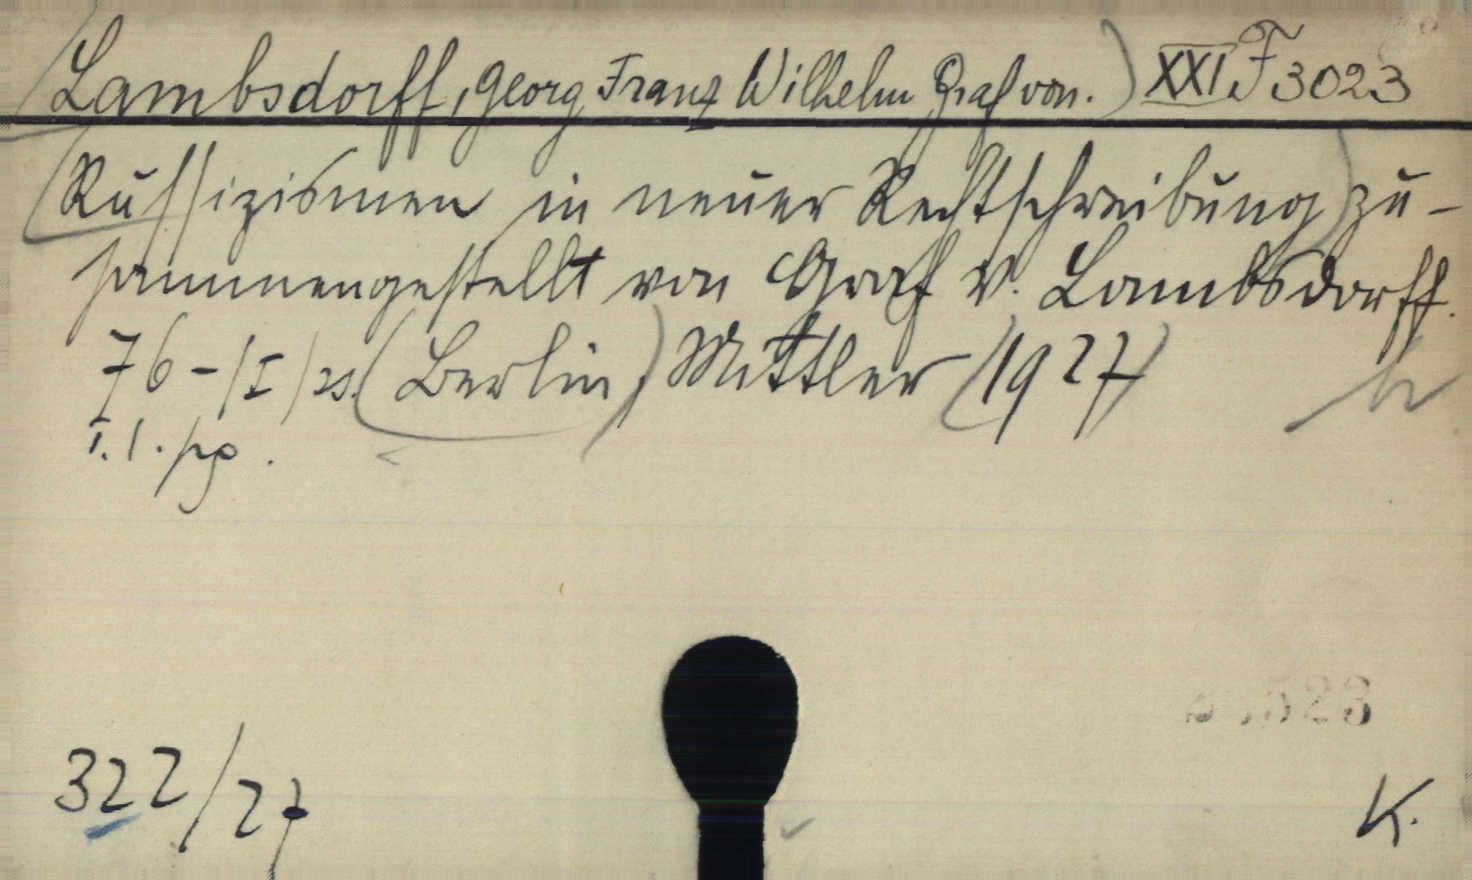 Lambsdorff, Georg Franz Wilhelm Graf von.) XXI F 3023
(Russizismen in neuer Rechtschreibung) zu-
sammengestellt von Graf v. Lambsdorff.
76-/I/ (Berlin,) Mittler (1927)
322/27
K.